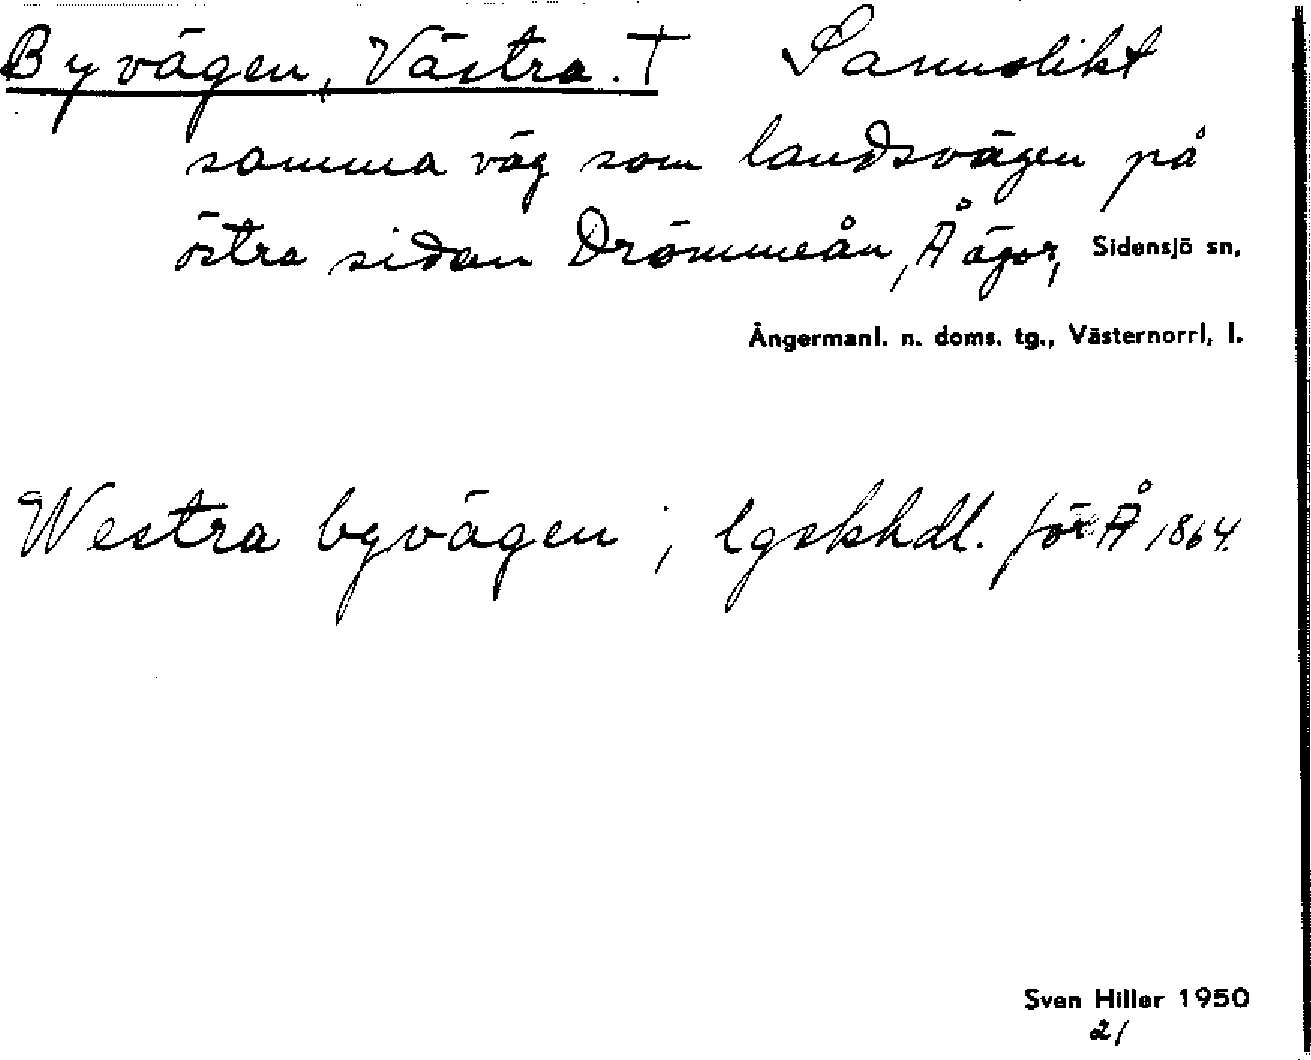 Byvägen, Västra. † Sannolikt
samma väg som landsvägen på
östra sidan Drömmeån, Å ägor, Sidensjö sn,
Ångermanl. n. doms. tg., Västernorrl. l.
Westra byvägen ; lgskhdl. för Å 1864.
Sven Hiller 1950
21